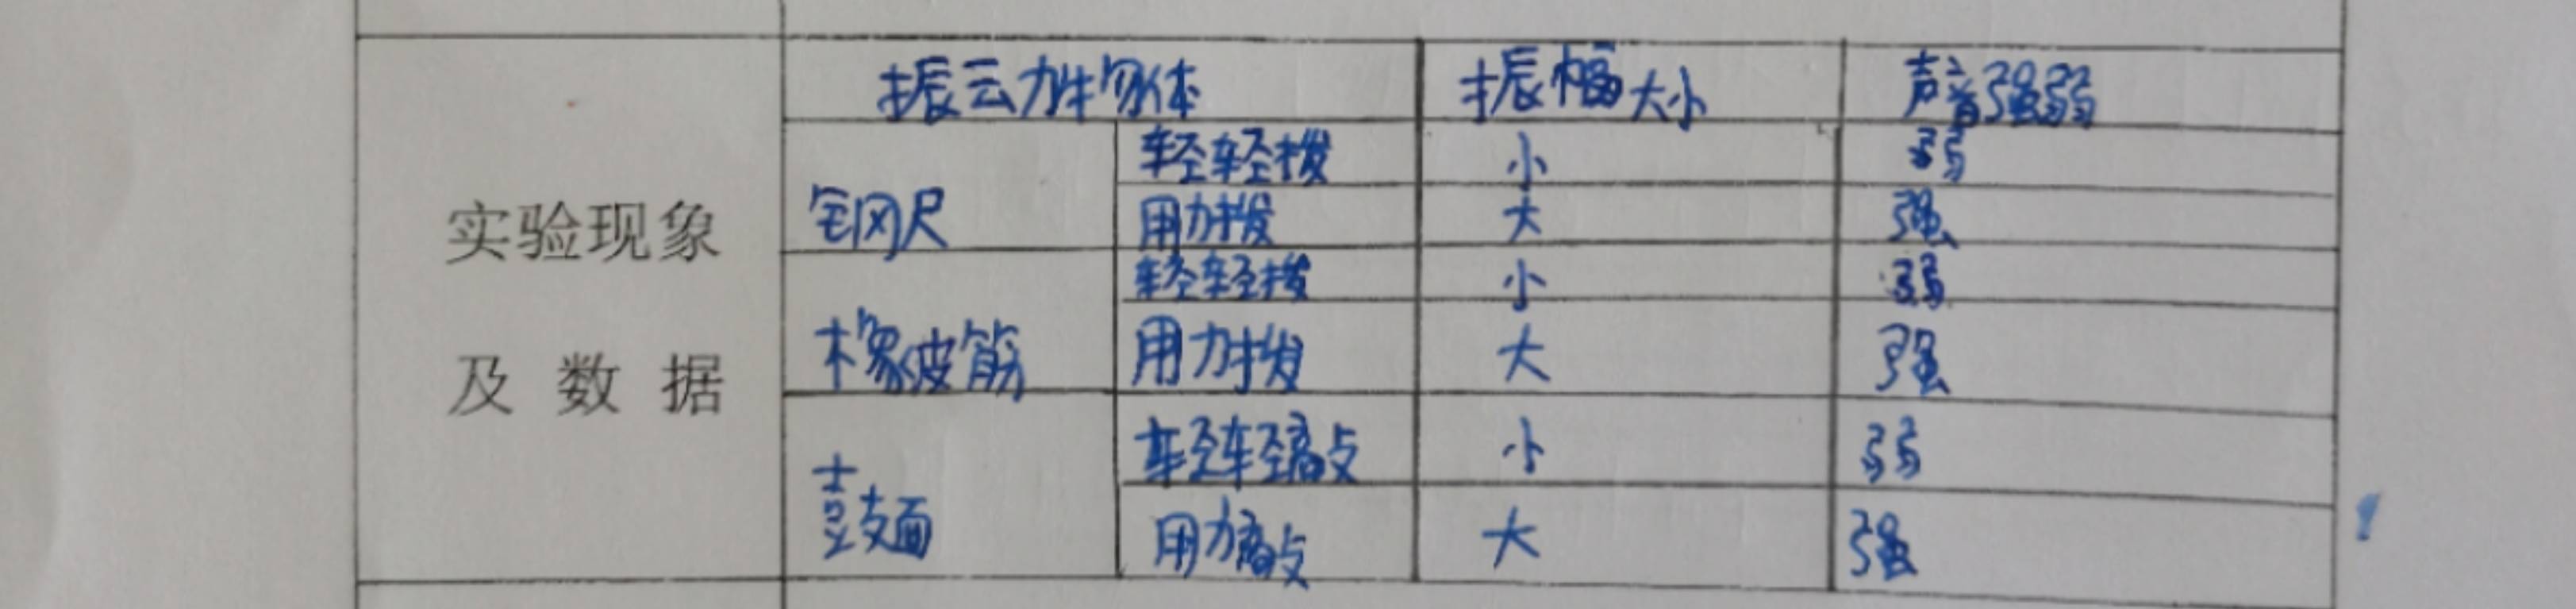 振动物体 振幅大小 声音强弱
轻轻拨 小 弱
实验现象 钢尺 用力拨 大 强
轻轻拨 小 弱
及数据 橡皮筋 用力拨 大 强
轻轻敲 小 弱
鼓面 用力敲 大 强